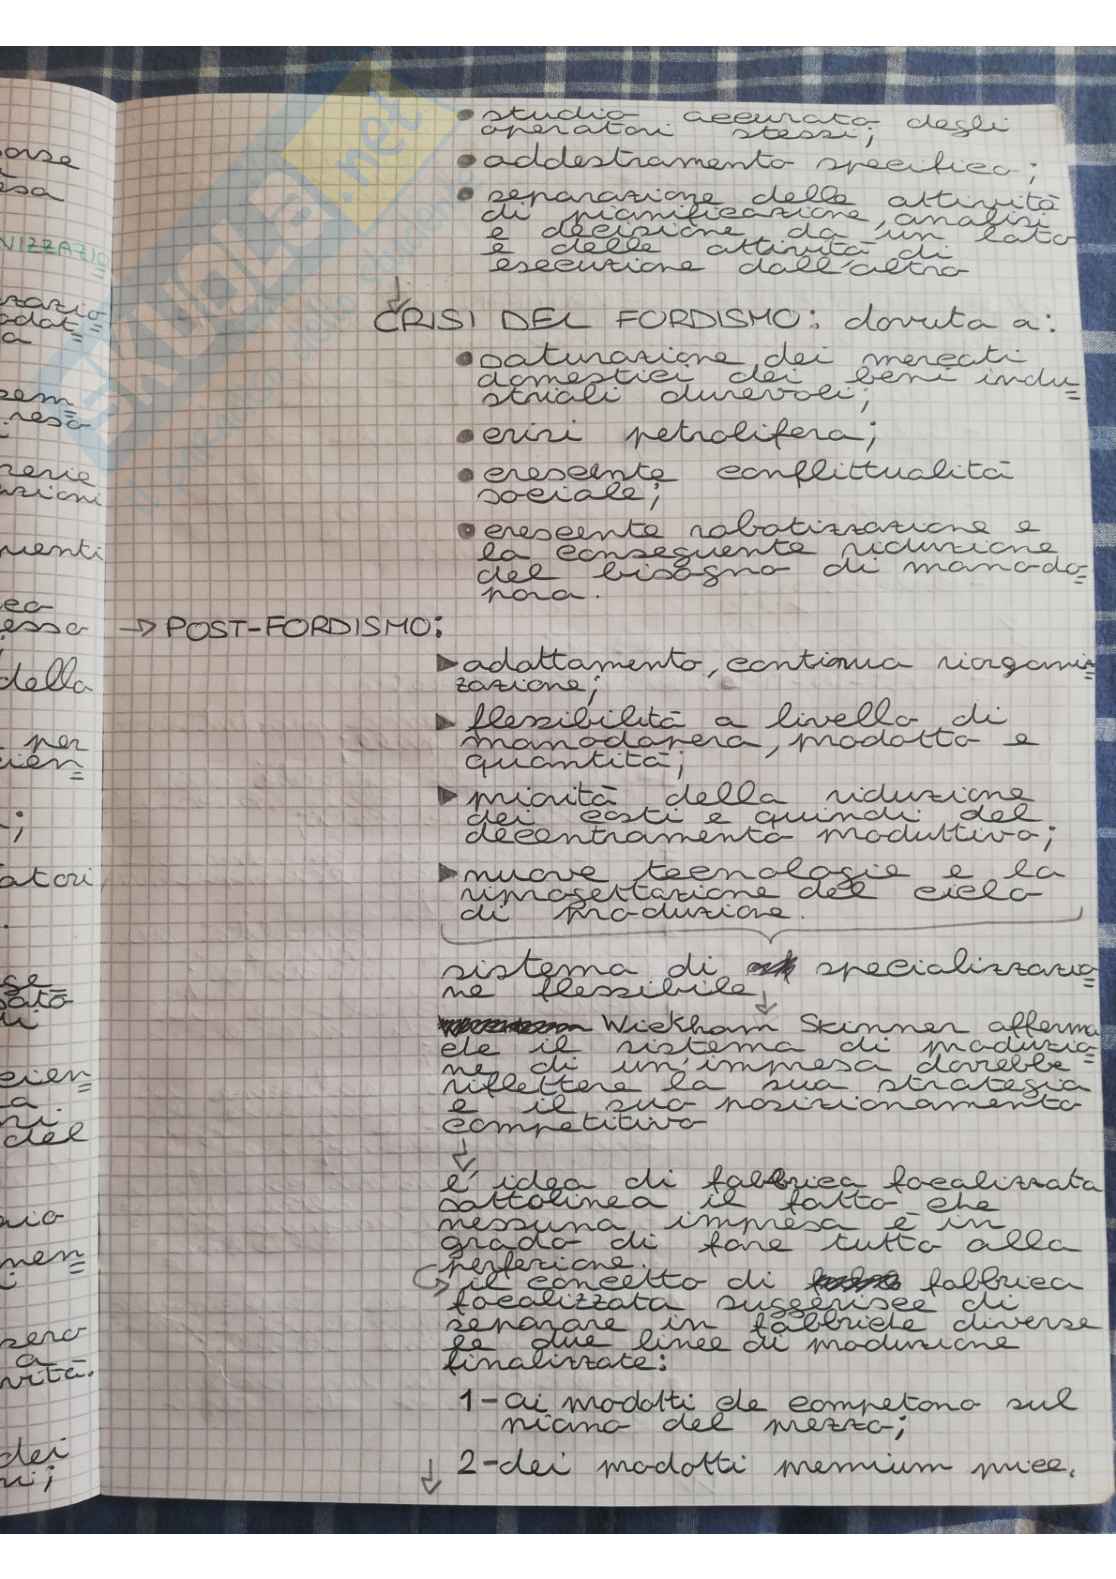 studio accurato degli
operatori stessi;
addestramento specifico;
separazione delle attività
di pianificazione, analisi
e decisione da un lato
e delle attività di
esecuzione dall'altro
↓
CRISI DEL FORDISMO: dovuta a:
saturazione dei mercati
domestici dei beni indu=
striali durevoli;
crisi petrolifera;
crescente conflittualità
sociale;
crescente robotizzazione e
la conseguente riduzione
del bisogno di manodo=
pera.
→ POST-FORDISMO:
adattamento, continua riorgani=
zazione;
flessibilità a livello di
manodopera, prodotto e
quantità;
priorità della riduzione
dei costi e quindi del
decentramento produttivo;
nuove tecnologie e la
riprogettazione del ciclo
di produzione.
sistema di specializzazio=
ne flessibile
↓
Wickham Skinner afferma
che il sistema di produzio=
ne di un'impresa dovrebbe
riflettere la sua strategia
e il suo posizionamento
competitivo
↓
l'idea di fabbrica focalizzata
sottolinea il fatto che
nessuna impresa è in
grado di fare tutto alla
perfezione.
→ il concetto di fabbrica
focalizzata suggerisce di
separare in fabbriche diverse
le due linee di produzione
finalizzate:
1-ai prodotti che competono sul
piano del prezzo;
↓ 2-dei prodotti premium price.
orse
esa
NIZZAZIO
zazio
odat=
a
sem
reso
i
serie
azioni
uenti
essa
della
per
cien=
i;
atori
se
sato
cien=
a.
ni
del
aio
men=
i
sero
a
vità.
dei
ni;
SKUOLA.net